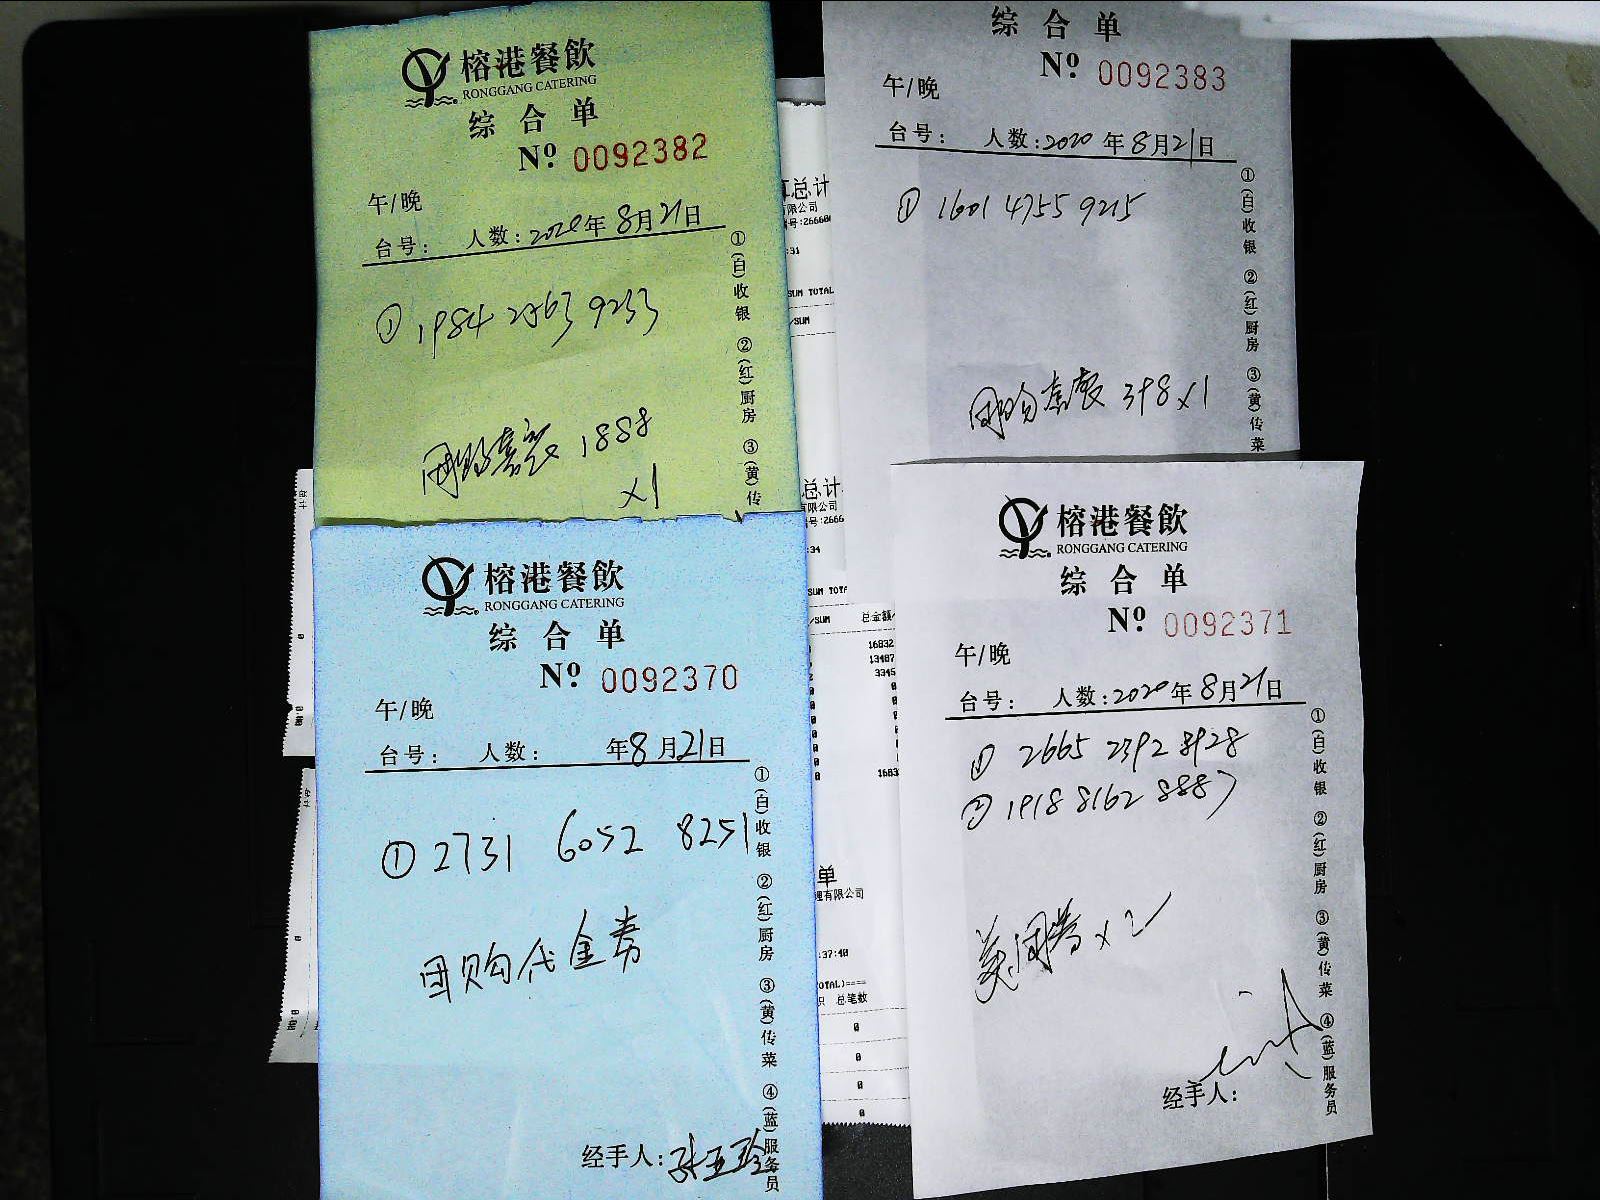 榕港餐飲
RONGGANG CATERING
综合单
Nº 0092382
午/晚
台号: 人数: 2020年8月21日
① 1984 2763 9233
团购套餐 1888
x1
①(白)收银 ②(红)厨房 ③(黄)传
综合单
Nº 0092383
午/晚
台号: 人数: 2020年8月21日
① 1601 4755 9215
团购套餐 398 x1
①(白)收银 ②(红)厨房 ③(黄)传菜
榕港餐飲
RONGGANG CATERING
综合单
Nº 0092370
午/晚
台号: 人数: 年8月21日
① 2731 6052 8251
团购代金券
经手人:
①(白)收银 ②(红)厨房 ③(黄)传菜 ④(蓝)服务员
榕港餐飲
RONGGANG CATERING
综合单
Nº 0092371
午/晚
台号: 人数: 2020年8月21日
① 2665 2392 8928
② 1918 8162 8887
美团券 x2
经手人:
①(白)收银 ②(红)厨房 ③(黄)传菜 ④(蓝)服务员
总计
限公司
:31
SUM TOTAL
/SUM
总计
有限公司
:34
/SUM 总金额
16832
13487
3345
0
0
0
0
0
0
单
理有限公司
:37:40
总笔数
0
0
0
0